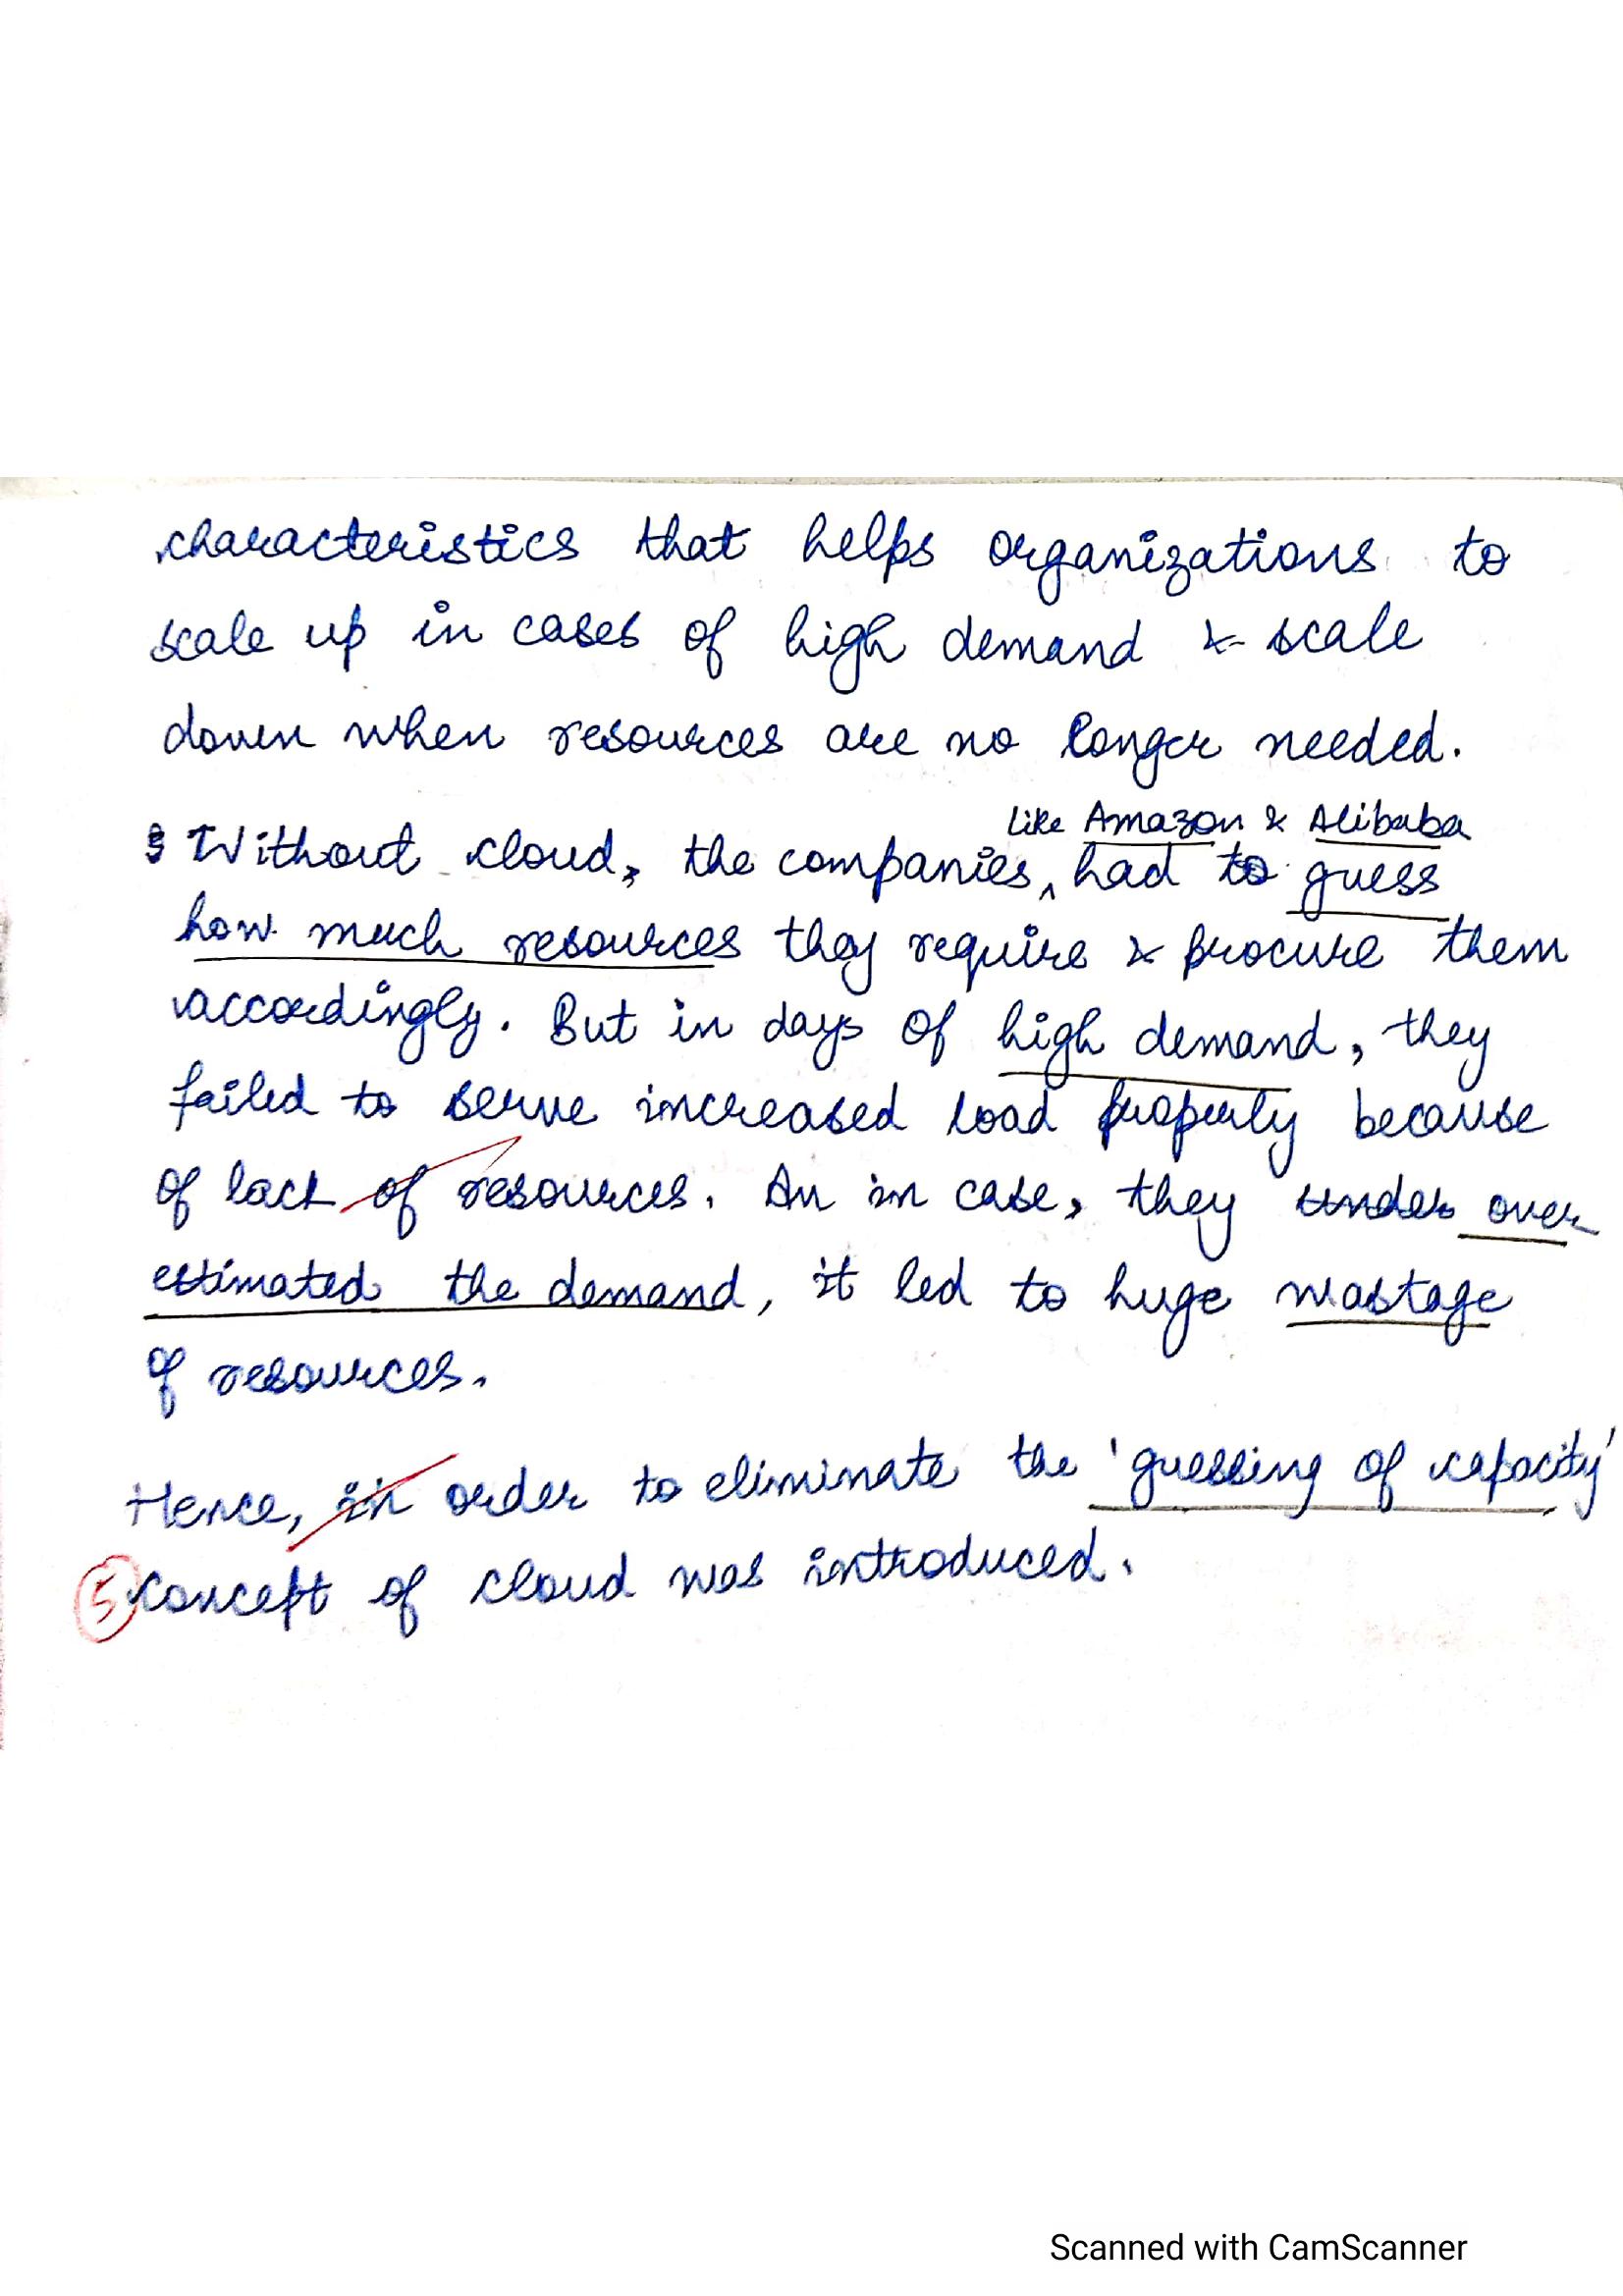 characteristics that helps organizations to
scale up in cases of high demand & scale
down when resources are no longer needed.
like Amazon & Alibaba
Without cloud, the companies ^ had to guess
how much resources they require & procure them
accordingly. But in days of high demand, they
failed to serve increased load properly because
of lack of resources. An in case, they under over
estimated the demand, it led to huge wastage
of resources.
Hence, in order to eliminate the 'guessing of capacity'
5 concept of cloud was introduced.
Scanned with CamScanner